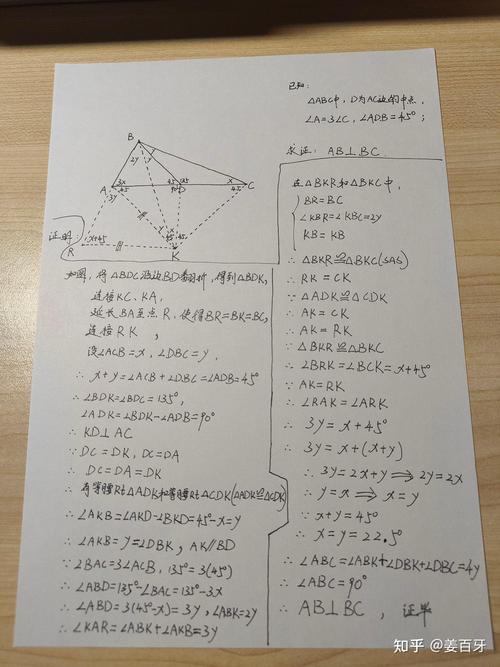 已知:
△ABC中，D为AC边的中点，
∠A=3∠C，∠ADB=45°；
求证：AB⊥BC.
B
2y
y
A
3x
45
135
D
x
C
3y
45
R
x+45
K
证明:
如图，将△BDC沿边BD翻折，得到△BDK，
连接KC、KA，
延长BA至点R，使得BR=BK=BC，
连接RK，
设∠ACB=x，∠DBC=y，
∴ x+y=∠ACB+∠DBC=∠ADB=45°
∴ ∠BDK=∠BDC=135°，
∠ADK=∠BDK-∠ADB=90°
∴ KD⊥AC
∵ DC=DK，DC=DA
∴ DC=DA=DK
∴ 有等腰Rt△ADK和等腰Rt△CDK(△ADK≌△CDK)
∴ ∠AKB=∠AKD-∠BKD=45°-x=y
∴ ∠AKB=y=∠DBK，AK∥BD
∵ ∠BAC=3∠ACB，135°=3(45°)
∴ ∠ABD=135°-∠BAC=135°-3x
∴ ∠ABD=3(45°-x)=3y，∠ABK=2y
∴ ∠KAR=∠ABK+∠AKB=3y
在△BKR和△BKC中，
BR=BC
∠KBR=∠KBC=2y
KB=KB
∴ △BKR≌△BKC(SAS)
∴ RK=CK
∵ △ADK≌△CDK
∴ AK=CK
∴ AK=RK
∵ △BKR≌△BKC
∴ ∠BRK=∠BCK=x+45°
∵ AK=RK
∴ ∠RAK=∠ARK
∴ 3y=x+45°
∴ 3y=x+(x+y)
∴ 3y=2x+y⟹2y=2x
∴ y=x⟹x=y
∵ x+y=45°
∴ x=y=22.5°
∴ ∠ABC=∠ABK+∠DBK+∠DBC=4y
∴ ∠ABC=90°
∴ AB⊥BC，证毕
知乎 @姜百牙